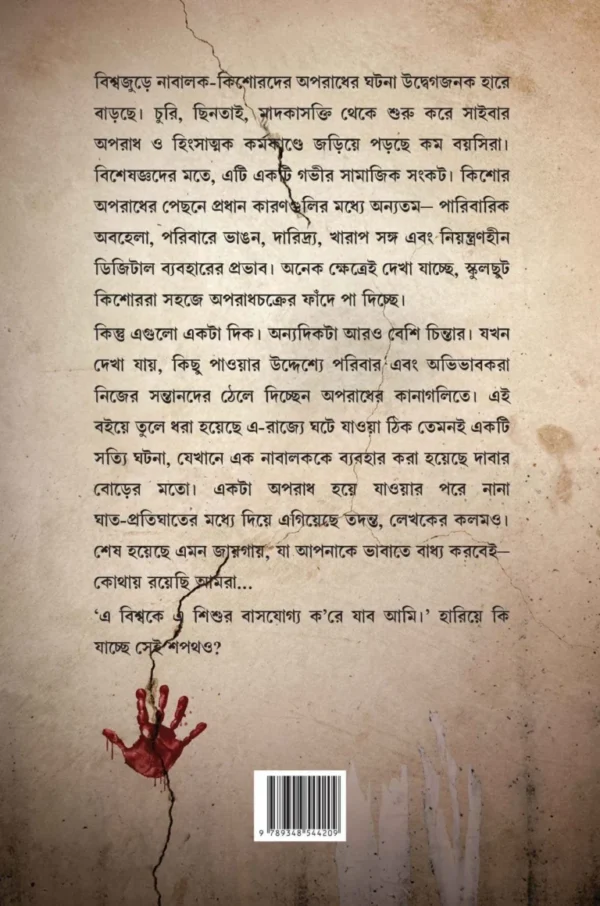 বিশ্বজুড়ে নাবালক-কিশোরদের অপরাধের ঘটনা উদ্বেগজনক হারে
বাড়ছে। চুরি, ছিনতাই, মাদকাসক্তি থেকে শুরু করে সাইবার
অপরাধ ও হিংসাত্মক কর্মকাণ্ডে জড়িয়ে পড়ছে কম বয়সিরা।
বিশেষজ্ঞদের মতে, এটি একটি গভীর সামাজিক সংকট। কিশোর
অপরাধের পেছনে প্রধান কারণগুলির মধ্যে অন্যতম— পারিবারিক
অবহেলা, পরিবারে ভাঙন, দারিদ্র্য, খারাপ সঙ্গ এবং নিয়ন্ত্রণহীন
ডিজিটাল ব্যবহারের প্রভাব। অনেক ক্ষেত্রেই দেখা যাচ্ছে, স্কুলছুট
কিশোররা সহজে অপরাধচক্রের ফাঁদে পা দিচ্ছে।
কিন্তু এগুলো একটা দিক। অন্যদিকটা আরও বেশি চিন্তার। যখন
দেখা যায়, কিছু পাওয়ার উদ্দেশ্যে পরিবার এবং অভিভাবকরা
নিজের সন্তানদের ঠেলে দিচ্ছেন অপরাধের কানাগলিতে। এই
বইয়ে তুলে ধরা হয়েছে এ-রাজ্যে ঘটে যাওয়া ঠিক তেমনই একটি
সত্যি ঘটনা, যেখানে এক নাবালককে ব্যবহার করা হয়েছে দাবার
বোড়ের মতো। একটা অপরাধ হয়ে যাওয়ার পরে নানা
ঘাত-প্রতিঘাতের মধ্যে দিয়ে এগিয়েছে তদন্ত, লেখকের কলমও।
শেষ হয়েছে এমন জায়গায়, যা আপনাকে ভাবাতে বাধ্য করবেই—
কোথায় রয়েছি আমরা...
‘এ বিশ্বকে এ শিশুর বাসযোগ্য ক’রে যাব আমি।’ হারিয়ে কি
যাচ্ছে সেই শপথও?
9 789348 544209